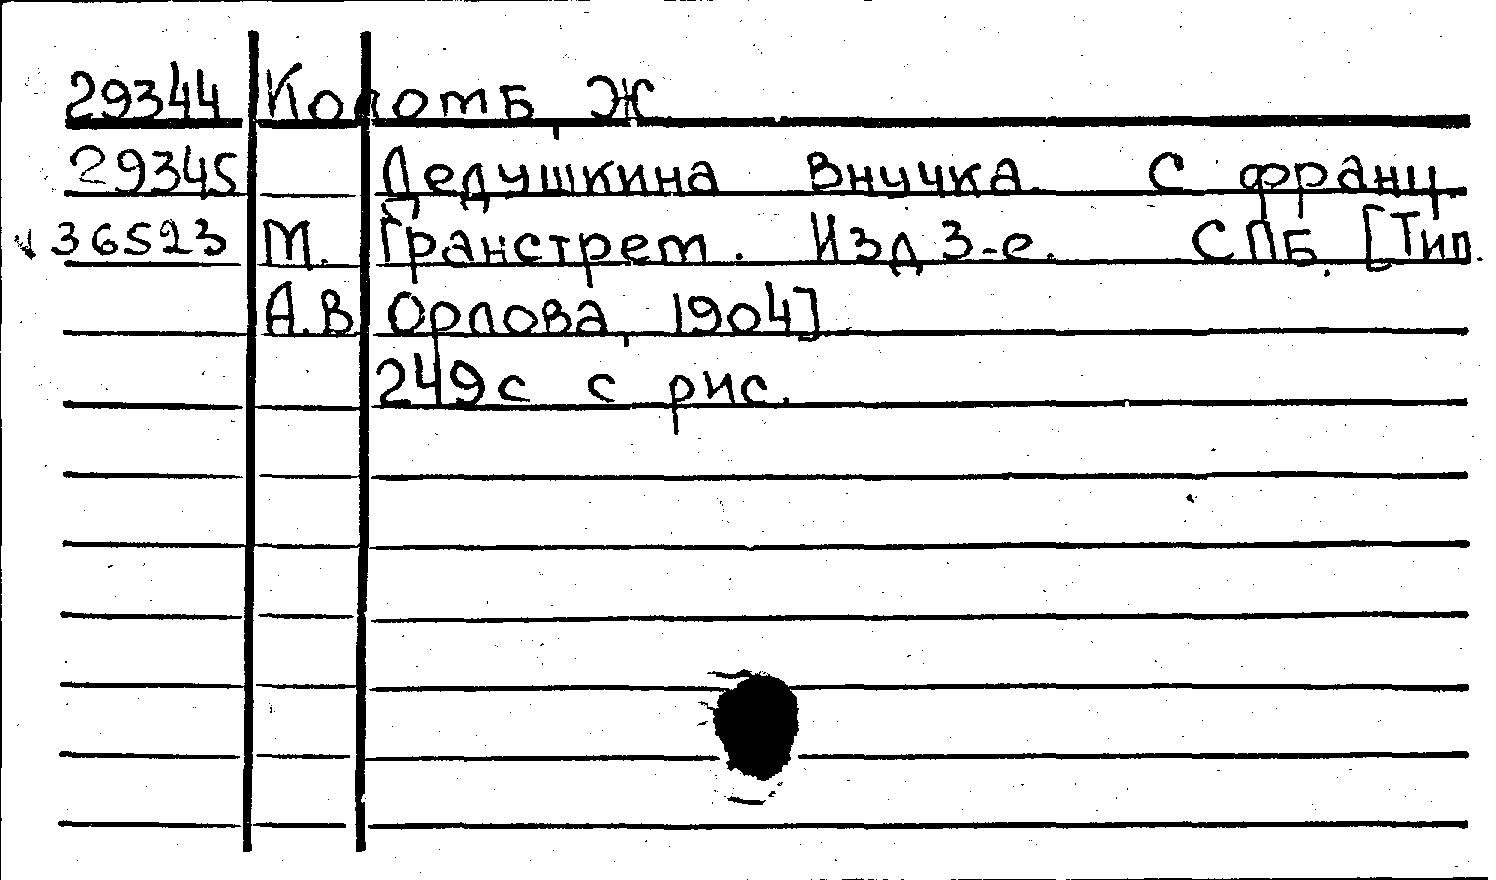 29344 Коломб, Ж
29345 Дедушкина внучка. С франц.
36523 М. Гранстрем. Изд 3-е. СПБ, [Тип.
А.В Орлова, 1904]
249с с рис.